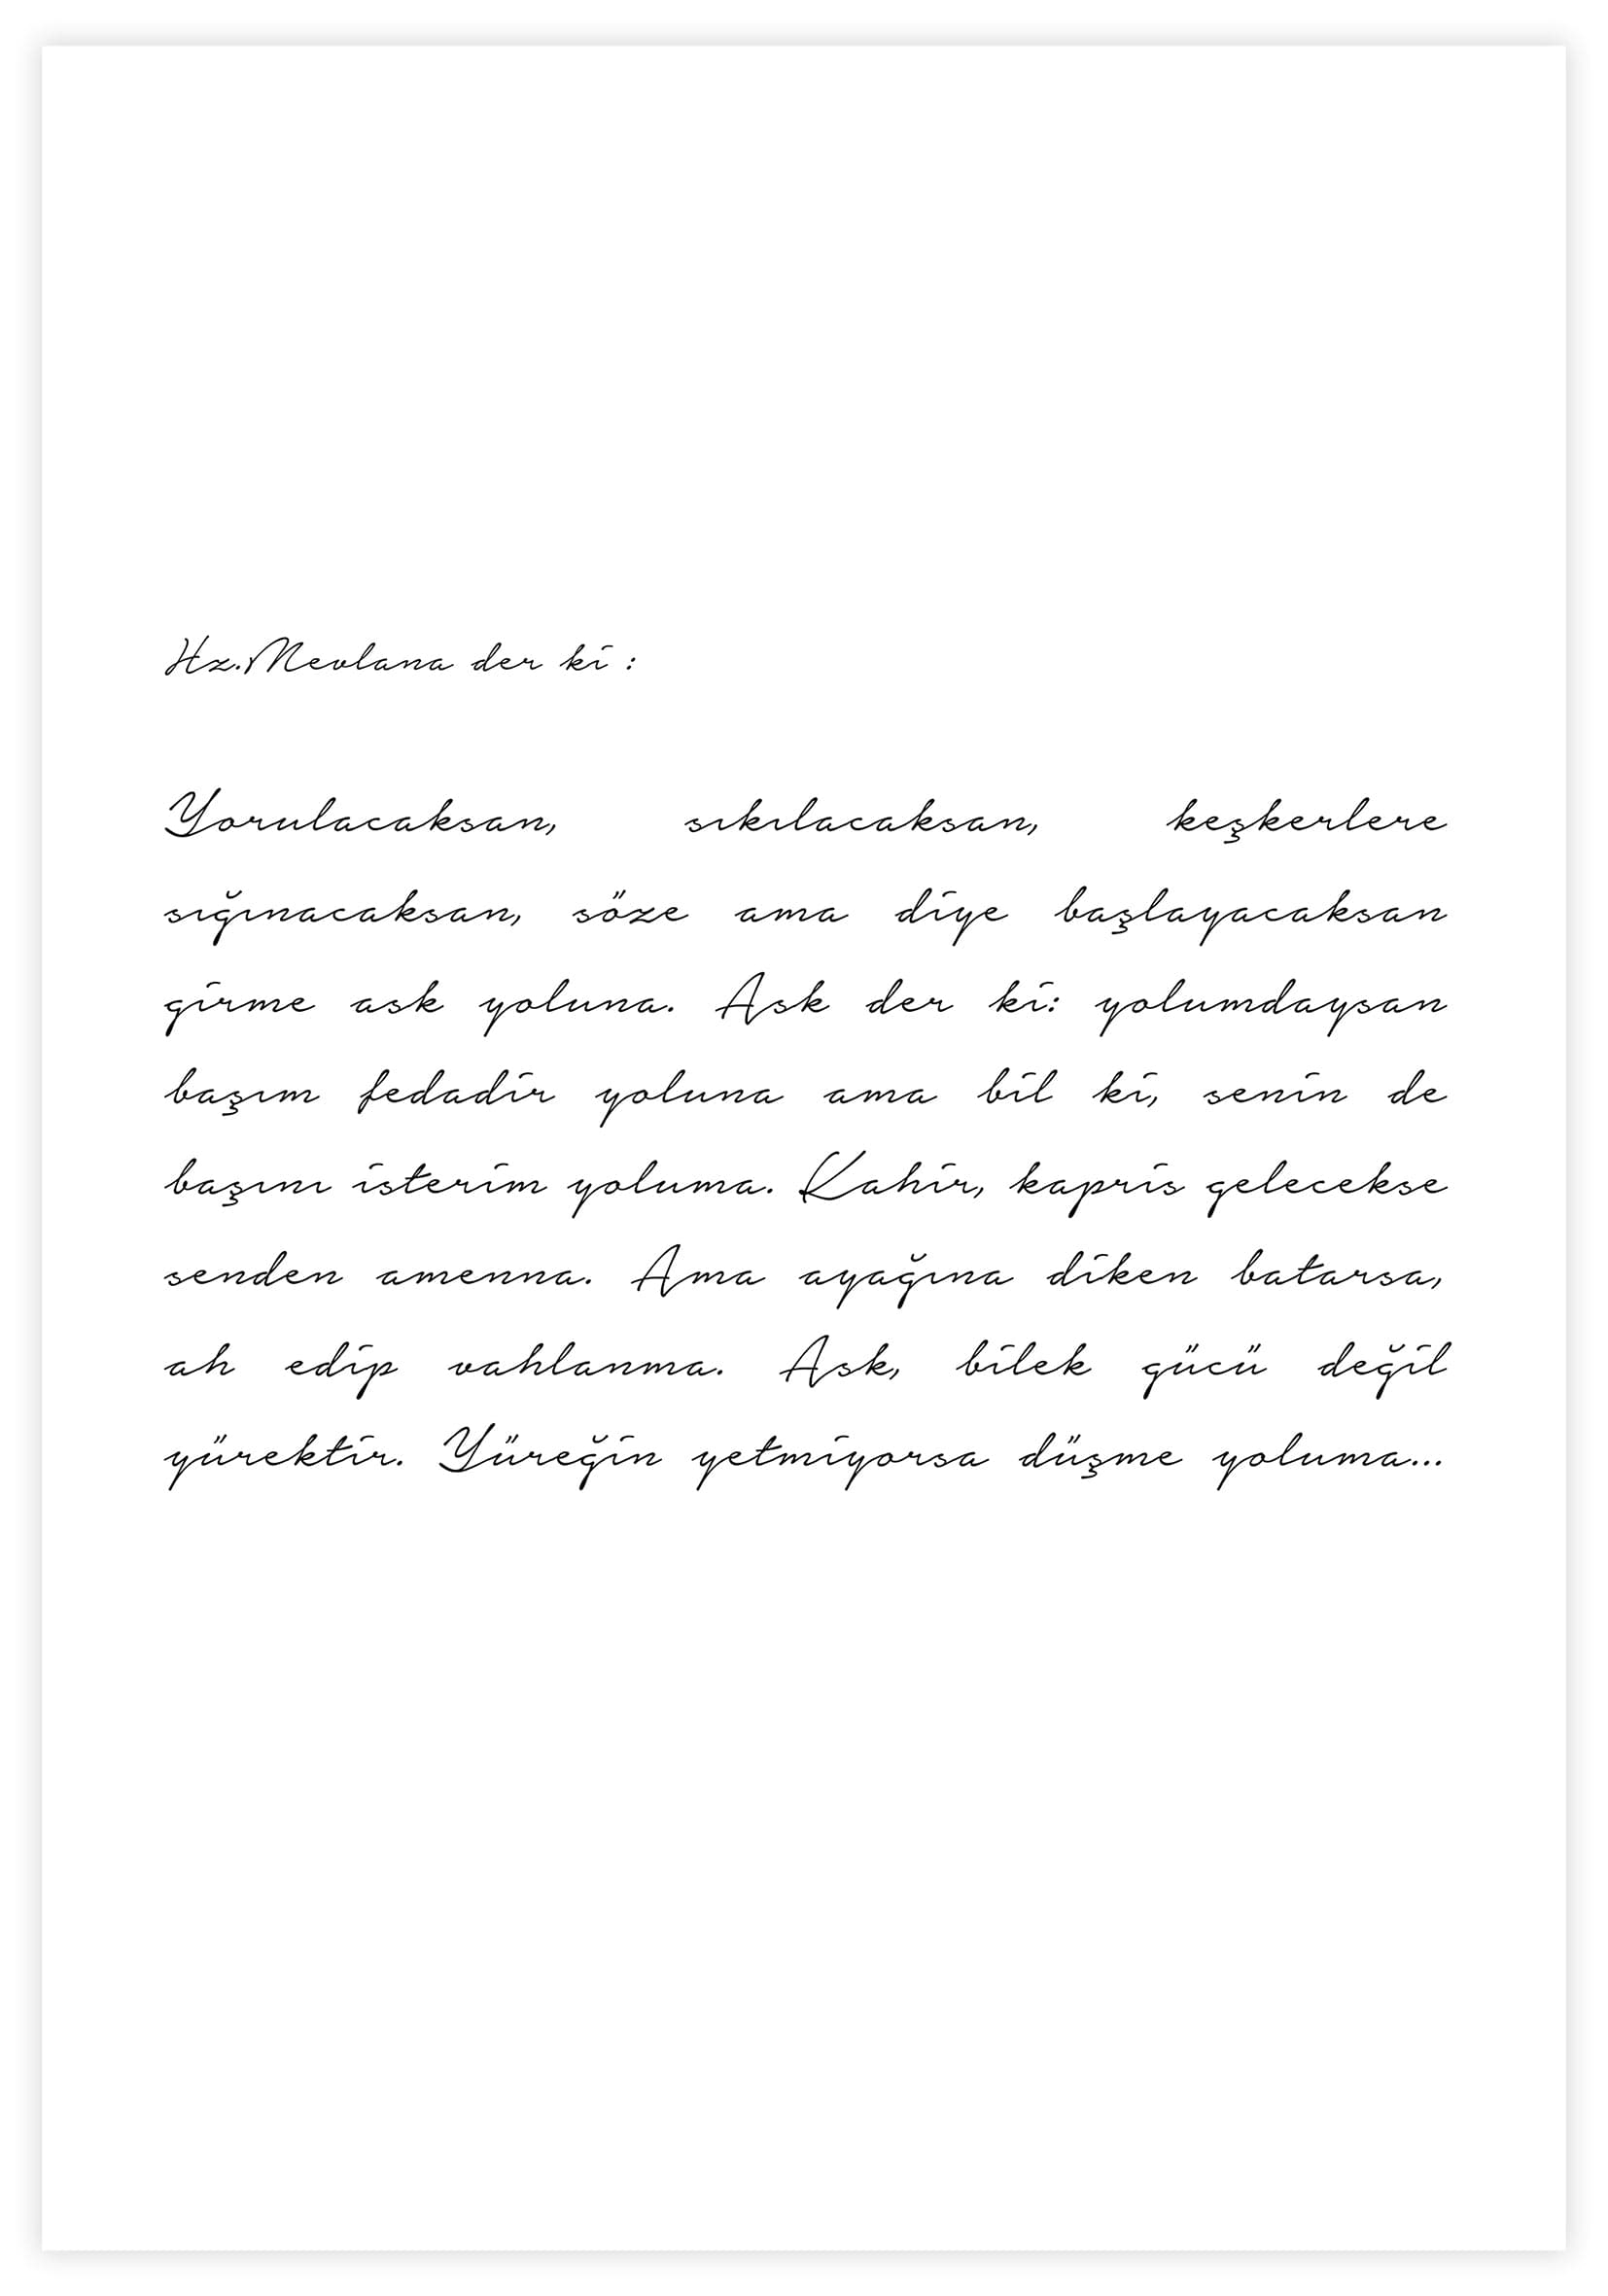 Hz.Mevlana der ki :
Yorulacaksan, sıkılacaksan, keşkerlere
sığınacaksan, söze ama diye başlayacaksan
girme ask yoluna. Ask der ki: yolumdaysan
başım fedadir yoluna ama bil ki, senin de
başını isterim yoluma. Kahir, kapris gelecekse
senden amenna. Ama ayağına diken batarsa,
ah edip vahlanma. Ask, bilek gücü değil
yürektir. Yüreğin yetmiyorsa düşme yoluma...